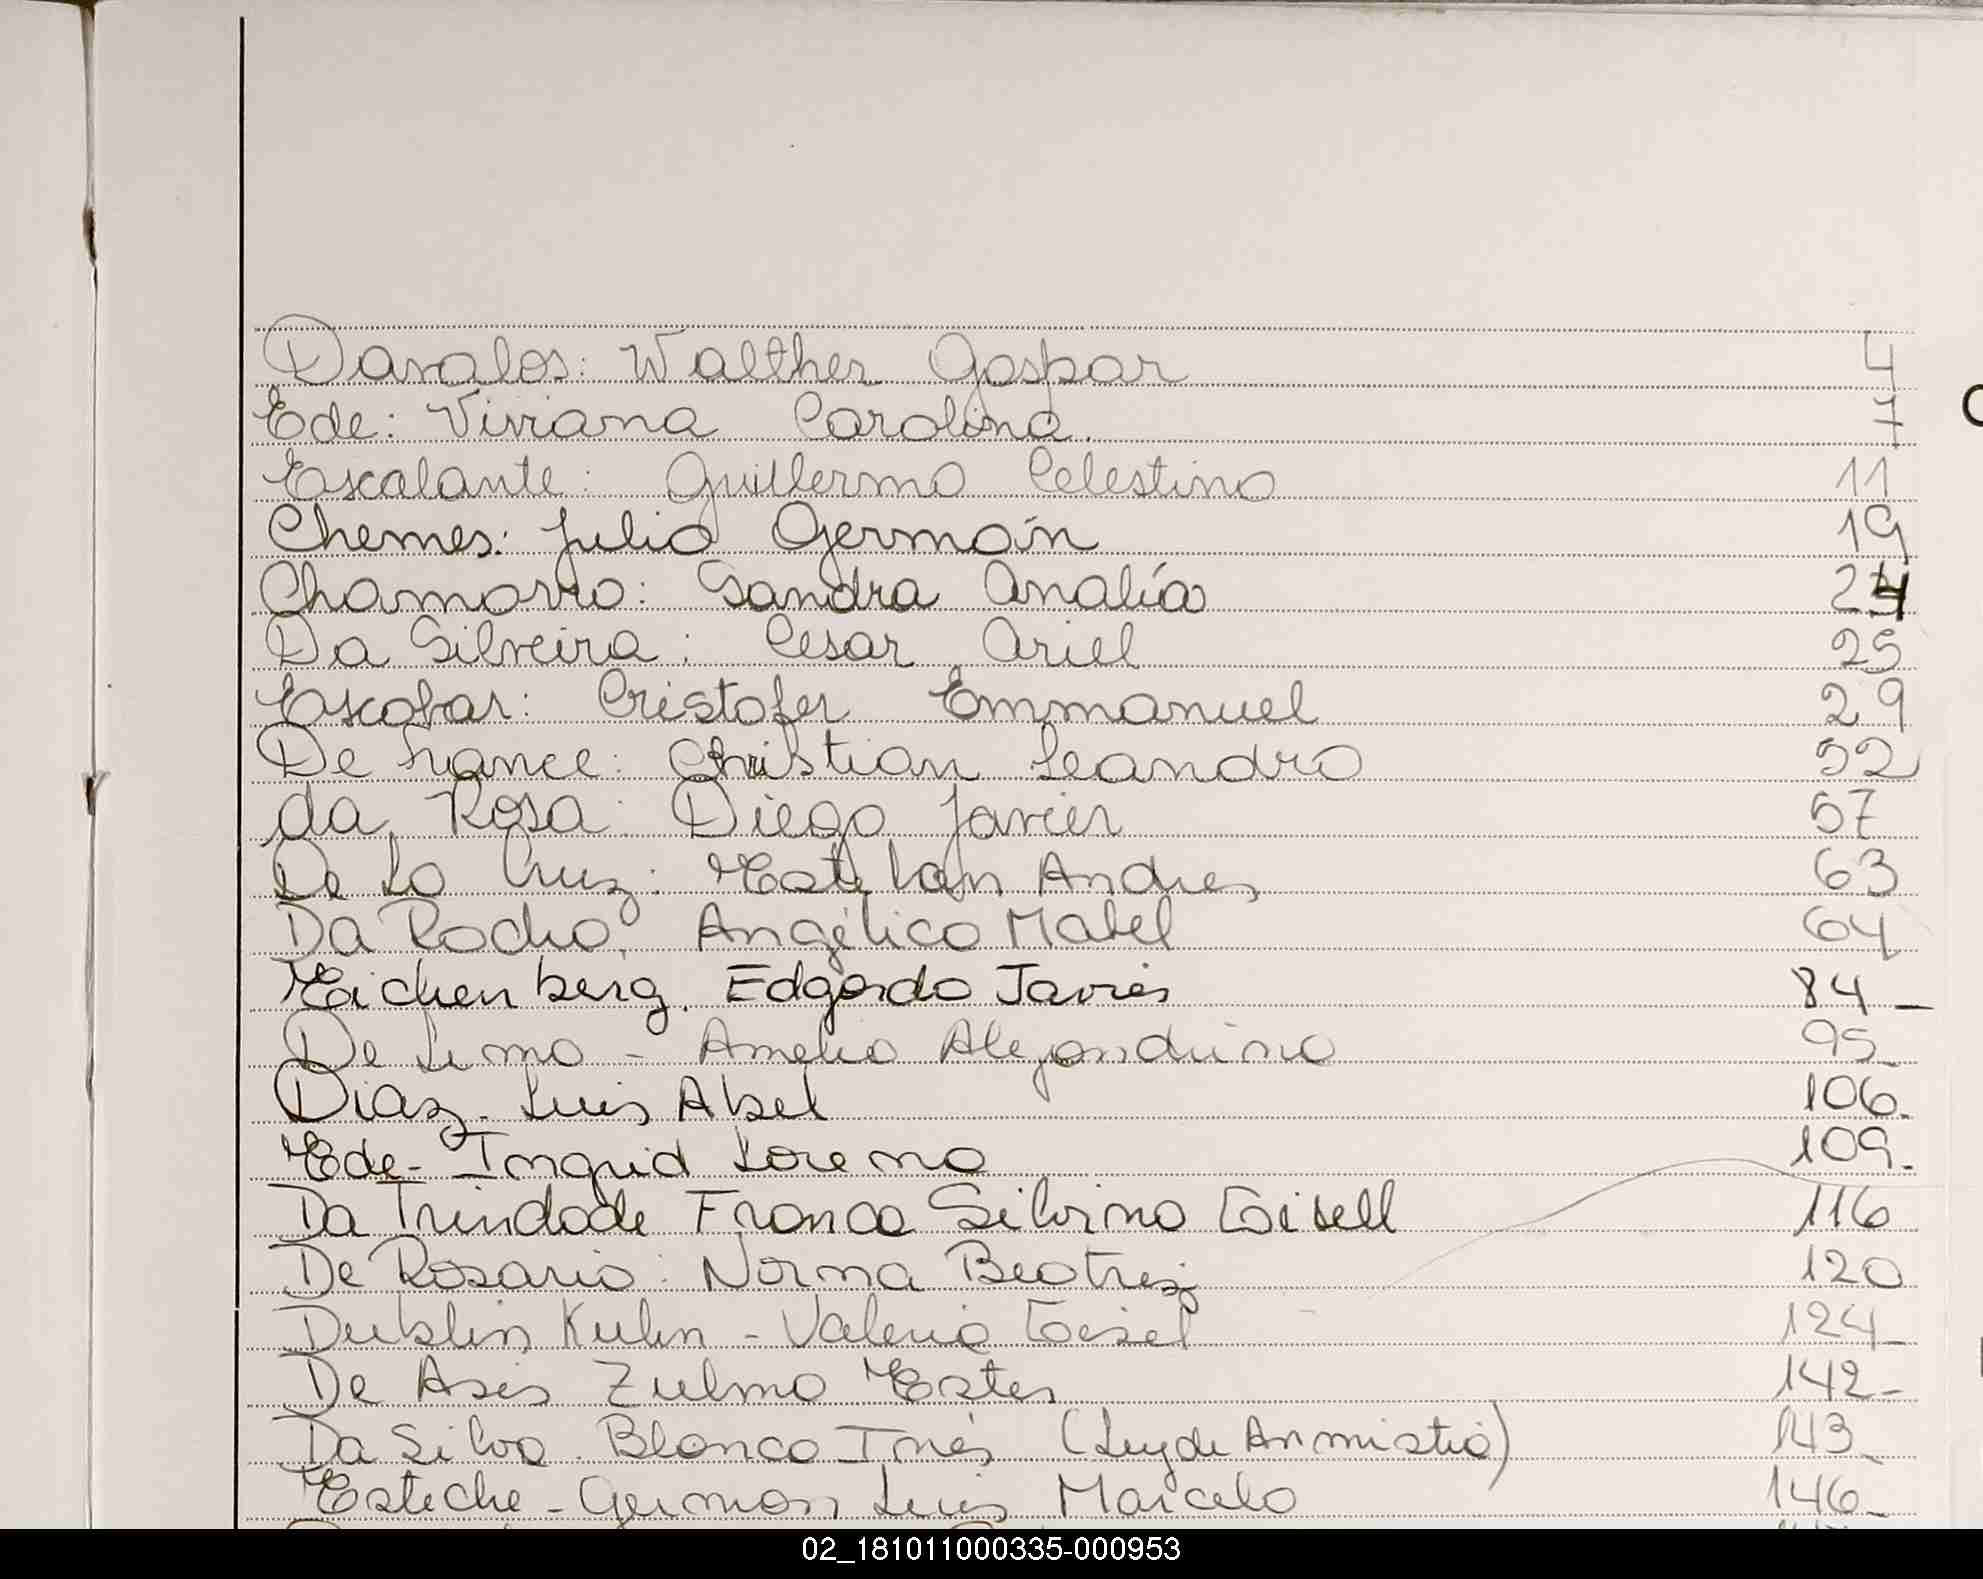 Davalos: Walther Gaspar 4
Ede: Viviana Carolina. 7
Escalante: Guillermo Celestino 11
Chemes: Julio Germán 19
Chamorro: Sandra Analía 24
Da Silveira: Cesar Ariel 25
Escobar: Cristofer Emmanuel 29
De France: Christian Leandro 52
da Rosa: Diego Javier 57
De La Cruz: Esteban Andres 63
Da Rocha: Angélica Mabel 64
Eichenberg. Edgardo Javier 84-
De Lima - Amelia Alejandrina 95-
Diaz- Luis Abel 106.
Ede- Ingrid Lorena 109.
Da Trindade Franca Silvina Gisell 116
De Rosario: Norma Beatriz 120
Dublin Kuhn - Valeria Gisel 124-
De Asis Zulma Ester 142-
Da Silva. Blanca Inés (Ley de Anmistia) 143-
Esteche - German Luis Marcelo 146-
02_181011000335-000953